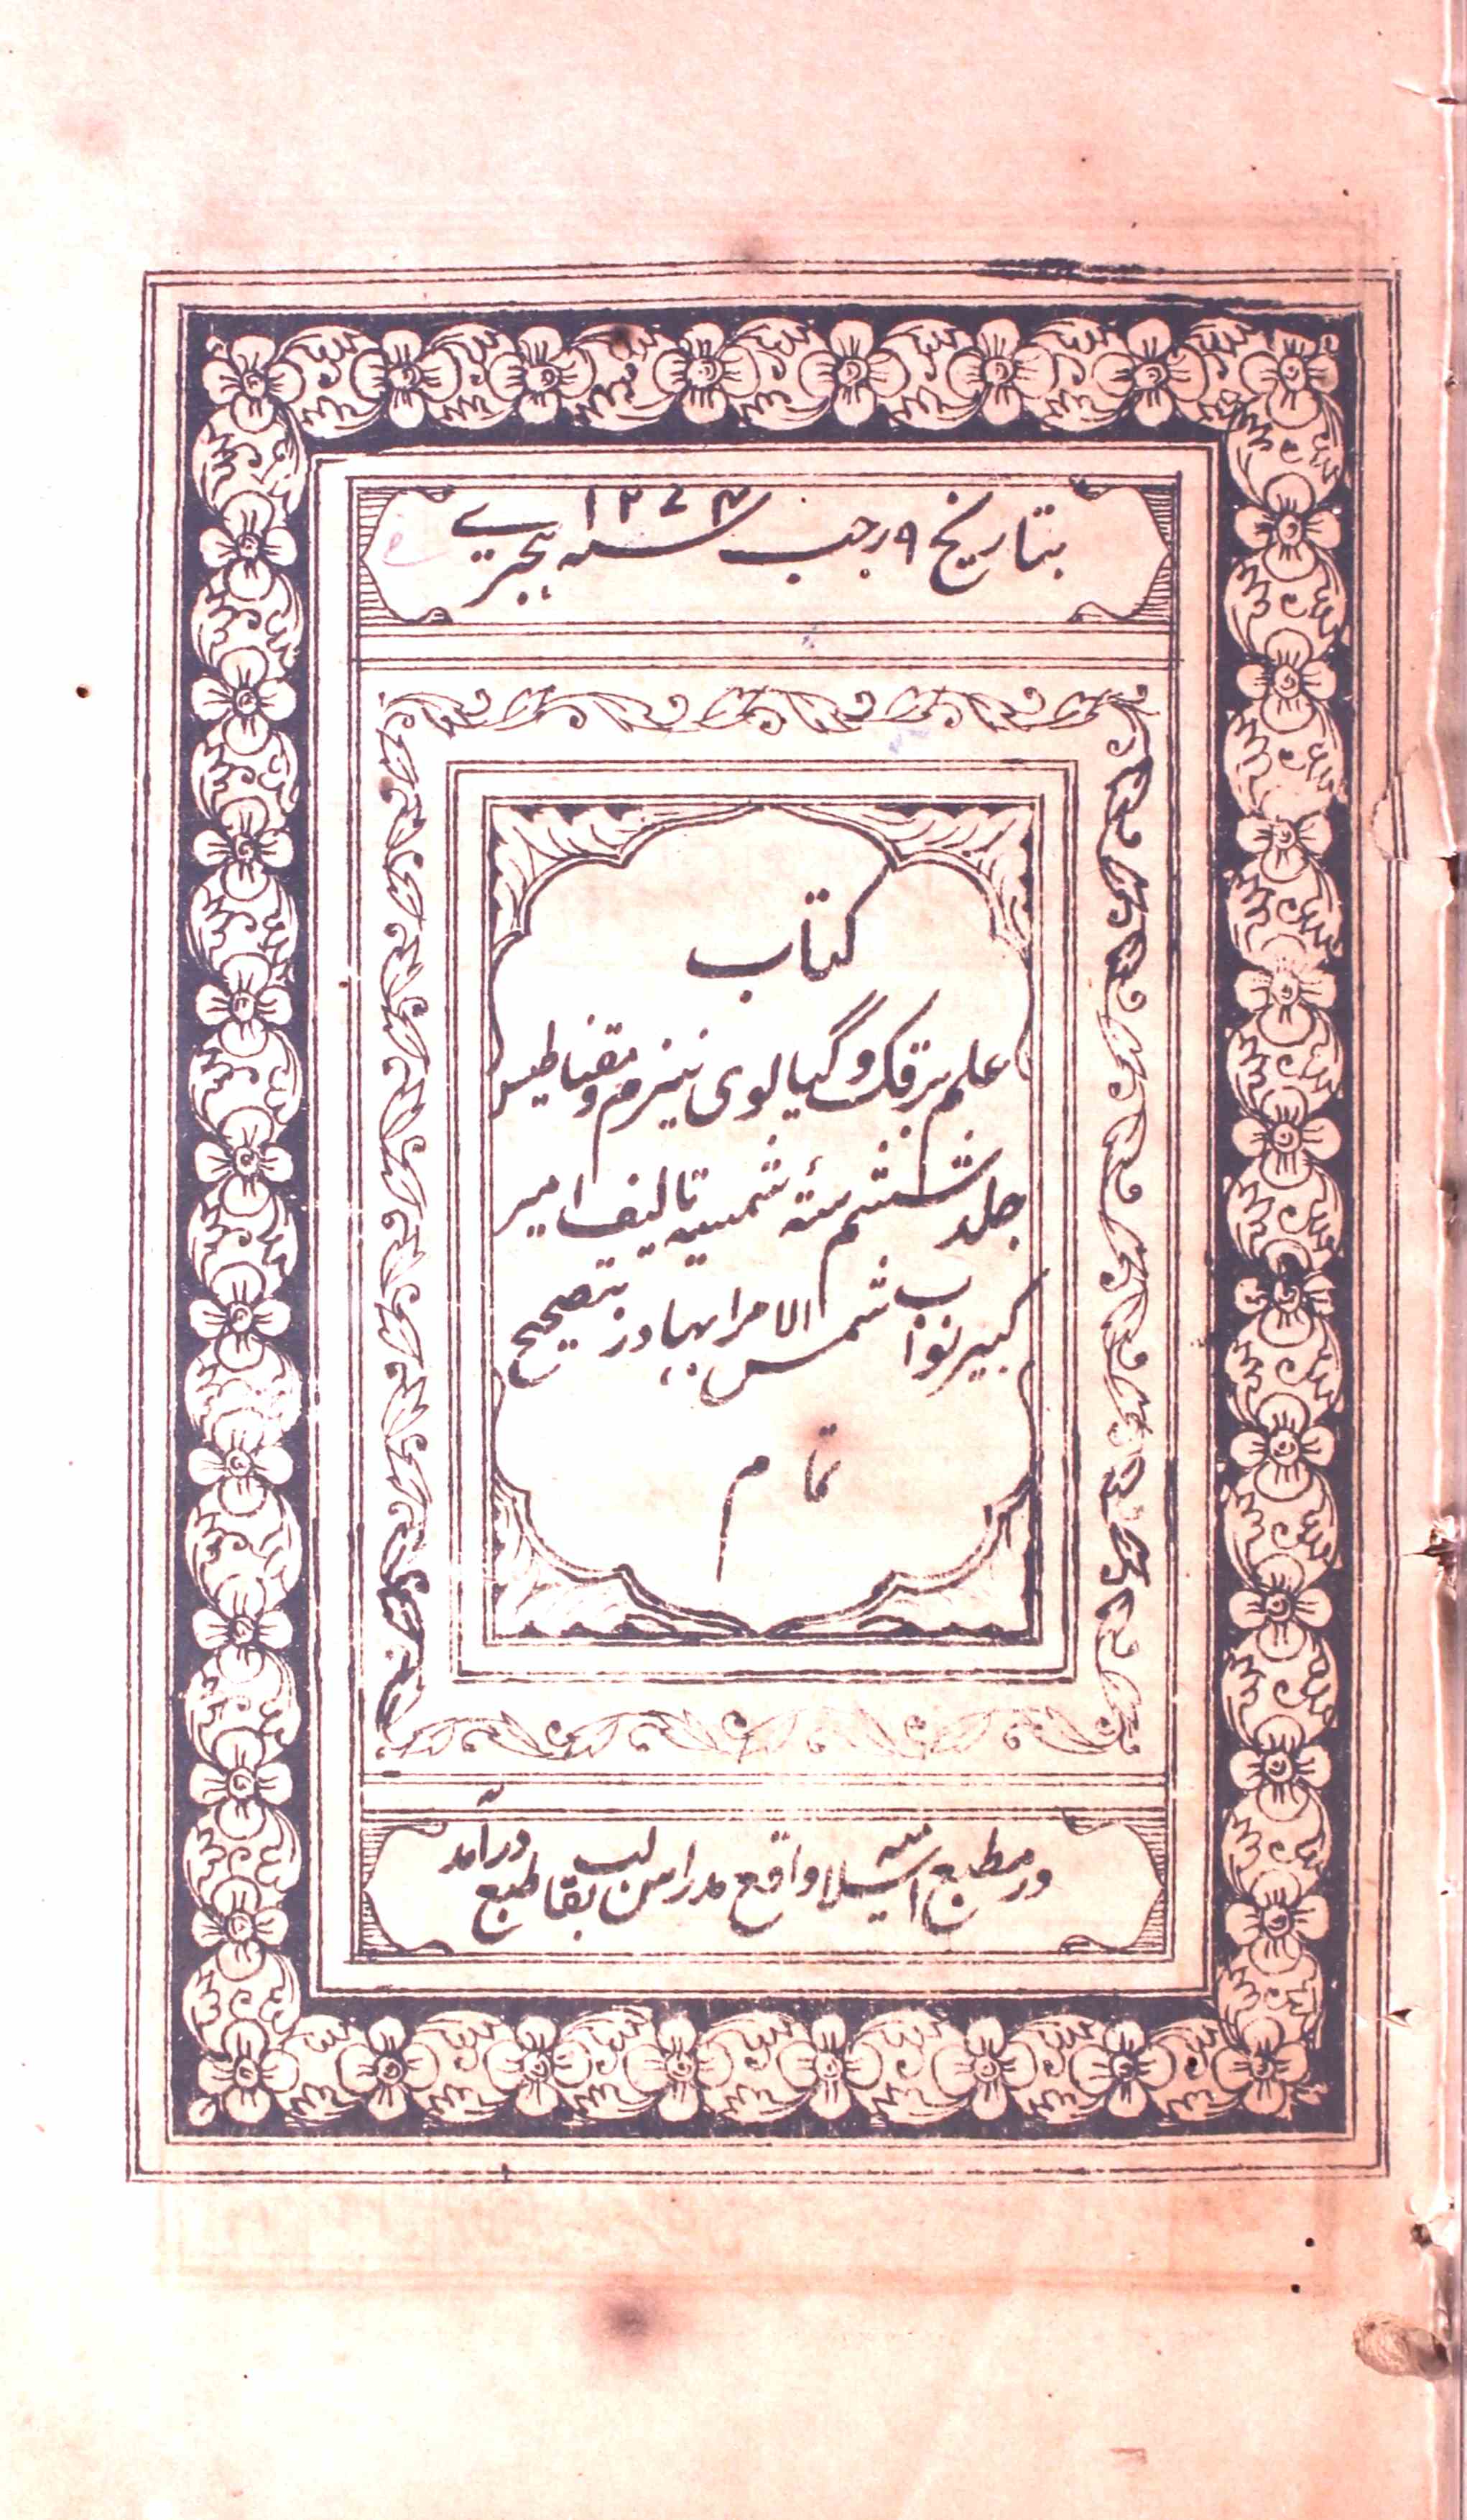 بتاریخ ۹ رجب سنه ۱۲۷۳ ہجریے
کتاب
علم برقک و گیالوی نیزم و مقناطیس
جلد ششم ستۂ شمسیہ تالیف امیر
کبیر نواب شمس الامرا بہادر بتصحیح
تمام
در مطبع واقع مدراس بقالب طبع درآمد